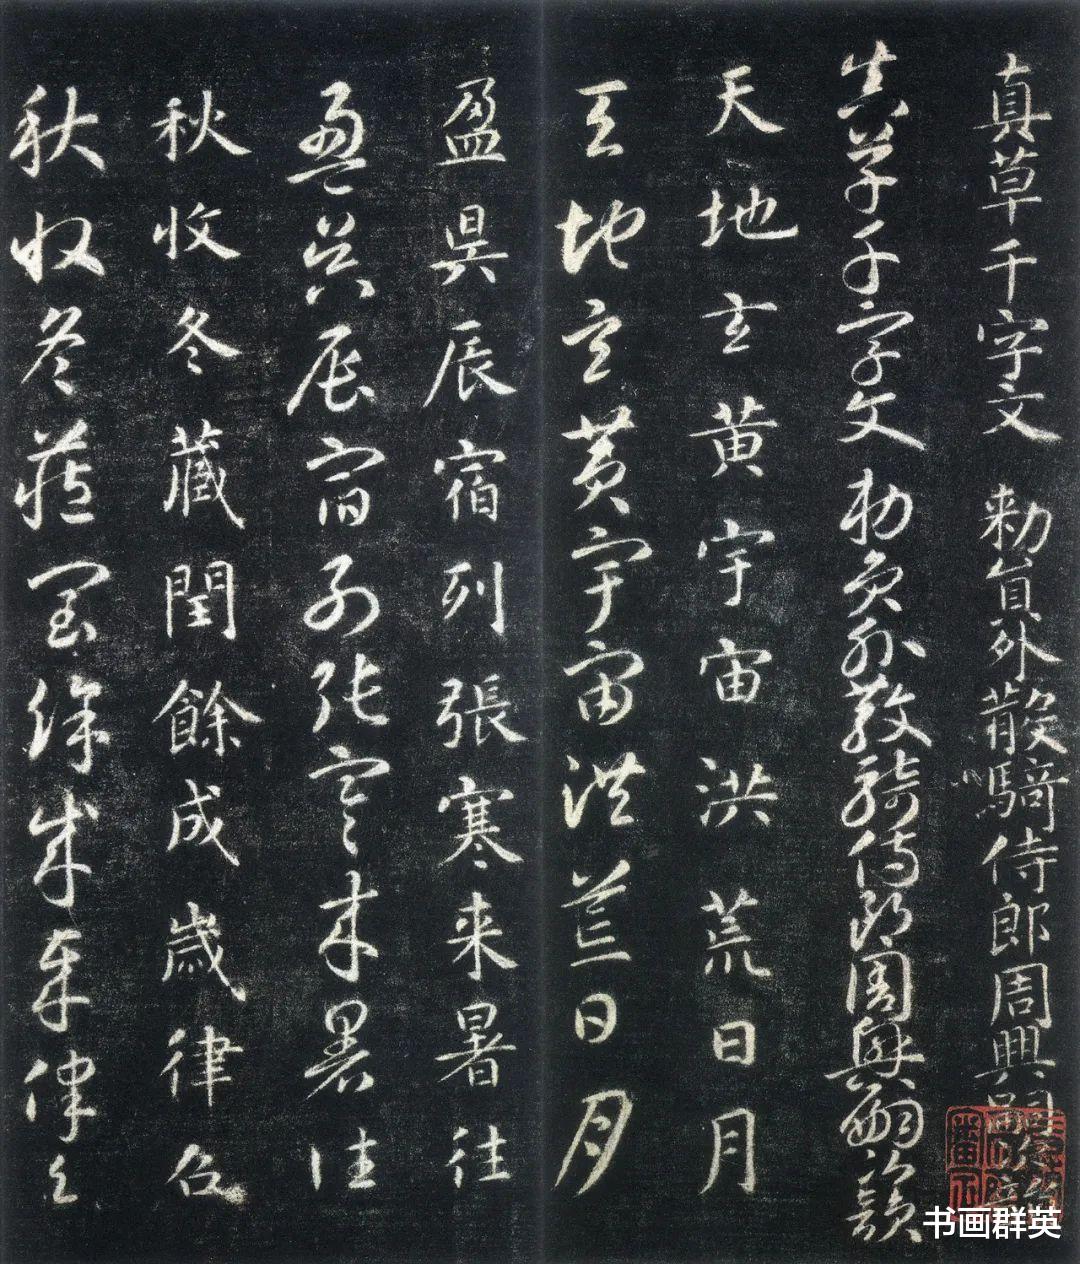 真草千字文 勅員外散騎侍郎周興嗣
真草千字文勅員外散騎侍郎周興嗣韻
天地玄黄宇宙洪荒日月
天地玄黄宇宙洪荒日月
盈昃辰宿列張寒来暑往
盈昃辰宿列張寒来暑往
秋收冬藏閏餘成歲律召
秋收冬藏閏餘成歲律召
书画群英